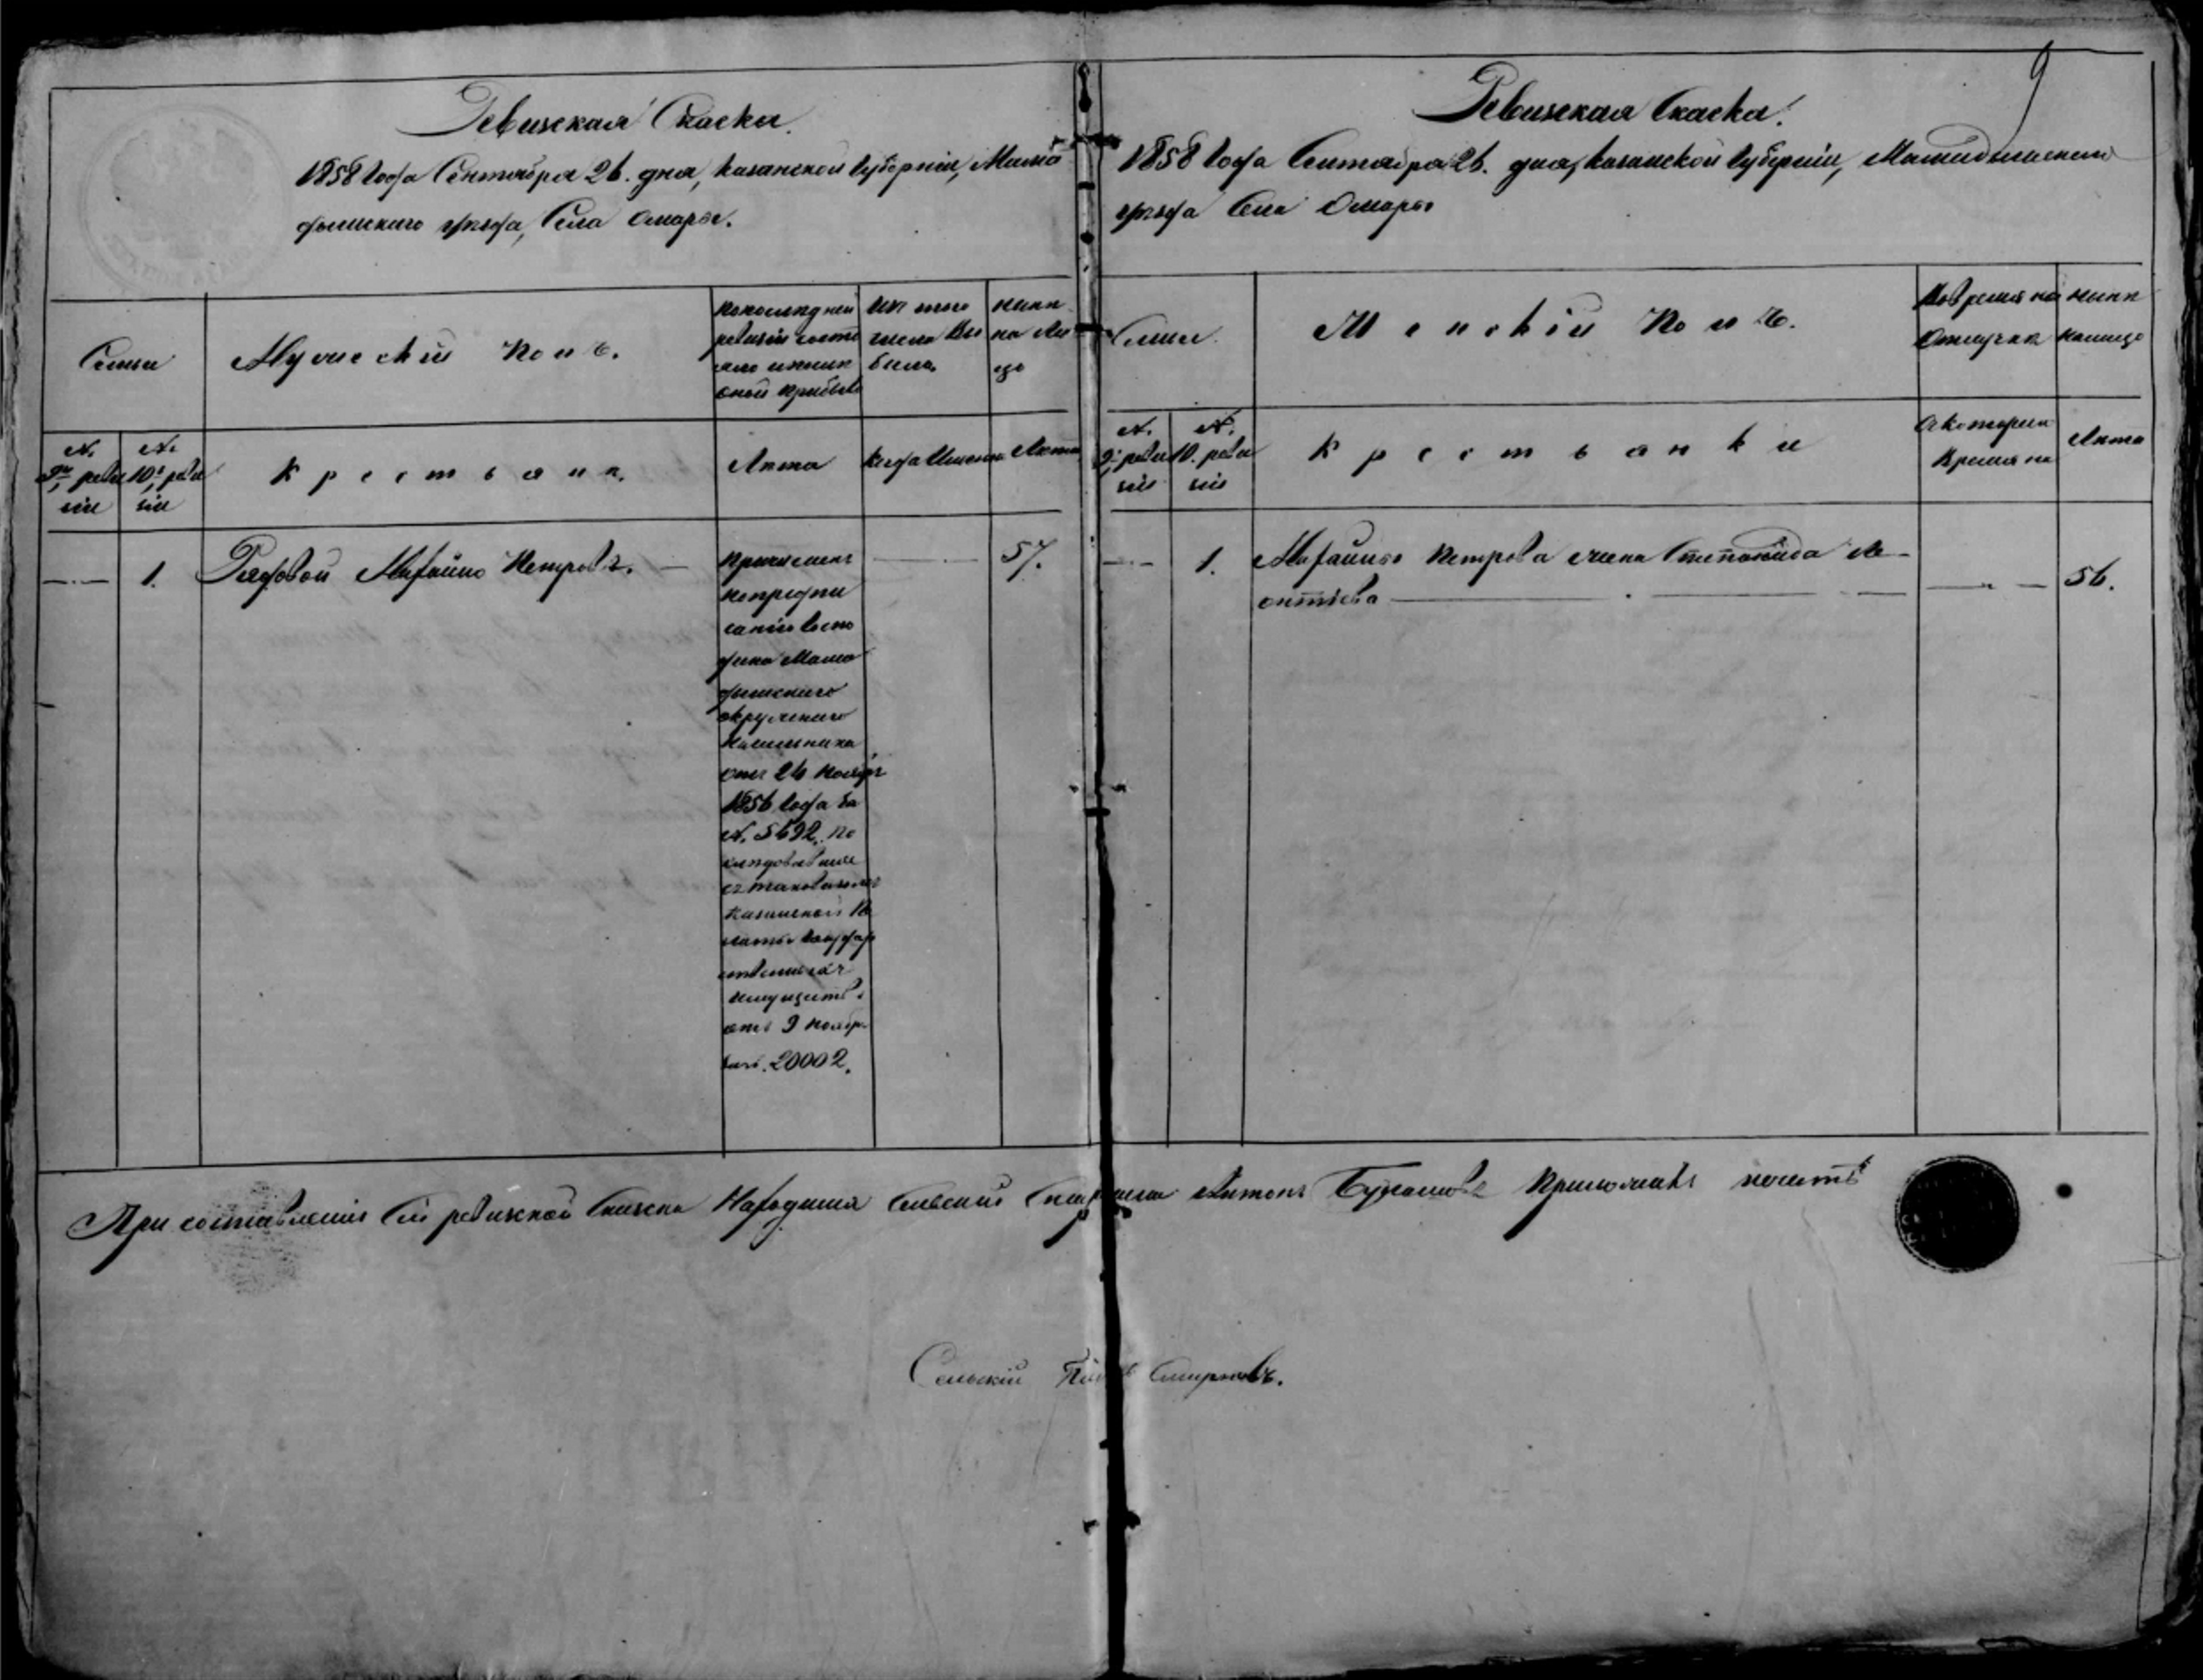 9
Ревизская Скаска
1858 года Сентября 26. дня, Казанской Губерніи, Мама
дышскаго уѣзда, Села Омары.
Семьи
Мужескій полъ.
По последней
ревизіи состо
яло и после
оной прибыло
Изъ того
числа вы
было.
Нынѣ
на ли
цо
№.
9й реви
зіи
№.
10й реви
зіи
Крестьяне.
Лѣта
Когда Именно
Лѣта
1.
Рядовой Михайло Петровъ.
Причисленъ
по предпи
санію Госпо
дина Мама
дышскаго
окружнаго
Начальника
отъ 26 Ноябр
1856 года за
№. 5692, по
следовавше
Казанской Па
латы Государ
ственныхъ
имуществъ
отъ 9 Ноябр
за №. 20002.
57.
Ревизская Скаска.
1858 года Сентября 26. дня, Казанской Губерніи, Мамадышскаго
уѣзда Села Омары
Семьи
Женскій полъ.
Во временной
Отлучкѣ
Нынѣ
налицо
№.
9й реви
зіи
№.
10. реви
зіи
Крестьянки
Съ котораго
Времяни
Лѣта
1.
Михайлы Петрова жена Степанида Ле-
онтьева
56.
При составленіи сей ревизской Скаски Находился Сельскій Старшина Антонъ приложилъ печать
Сельскій Смирновъ.